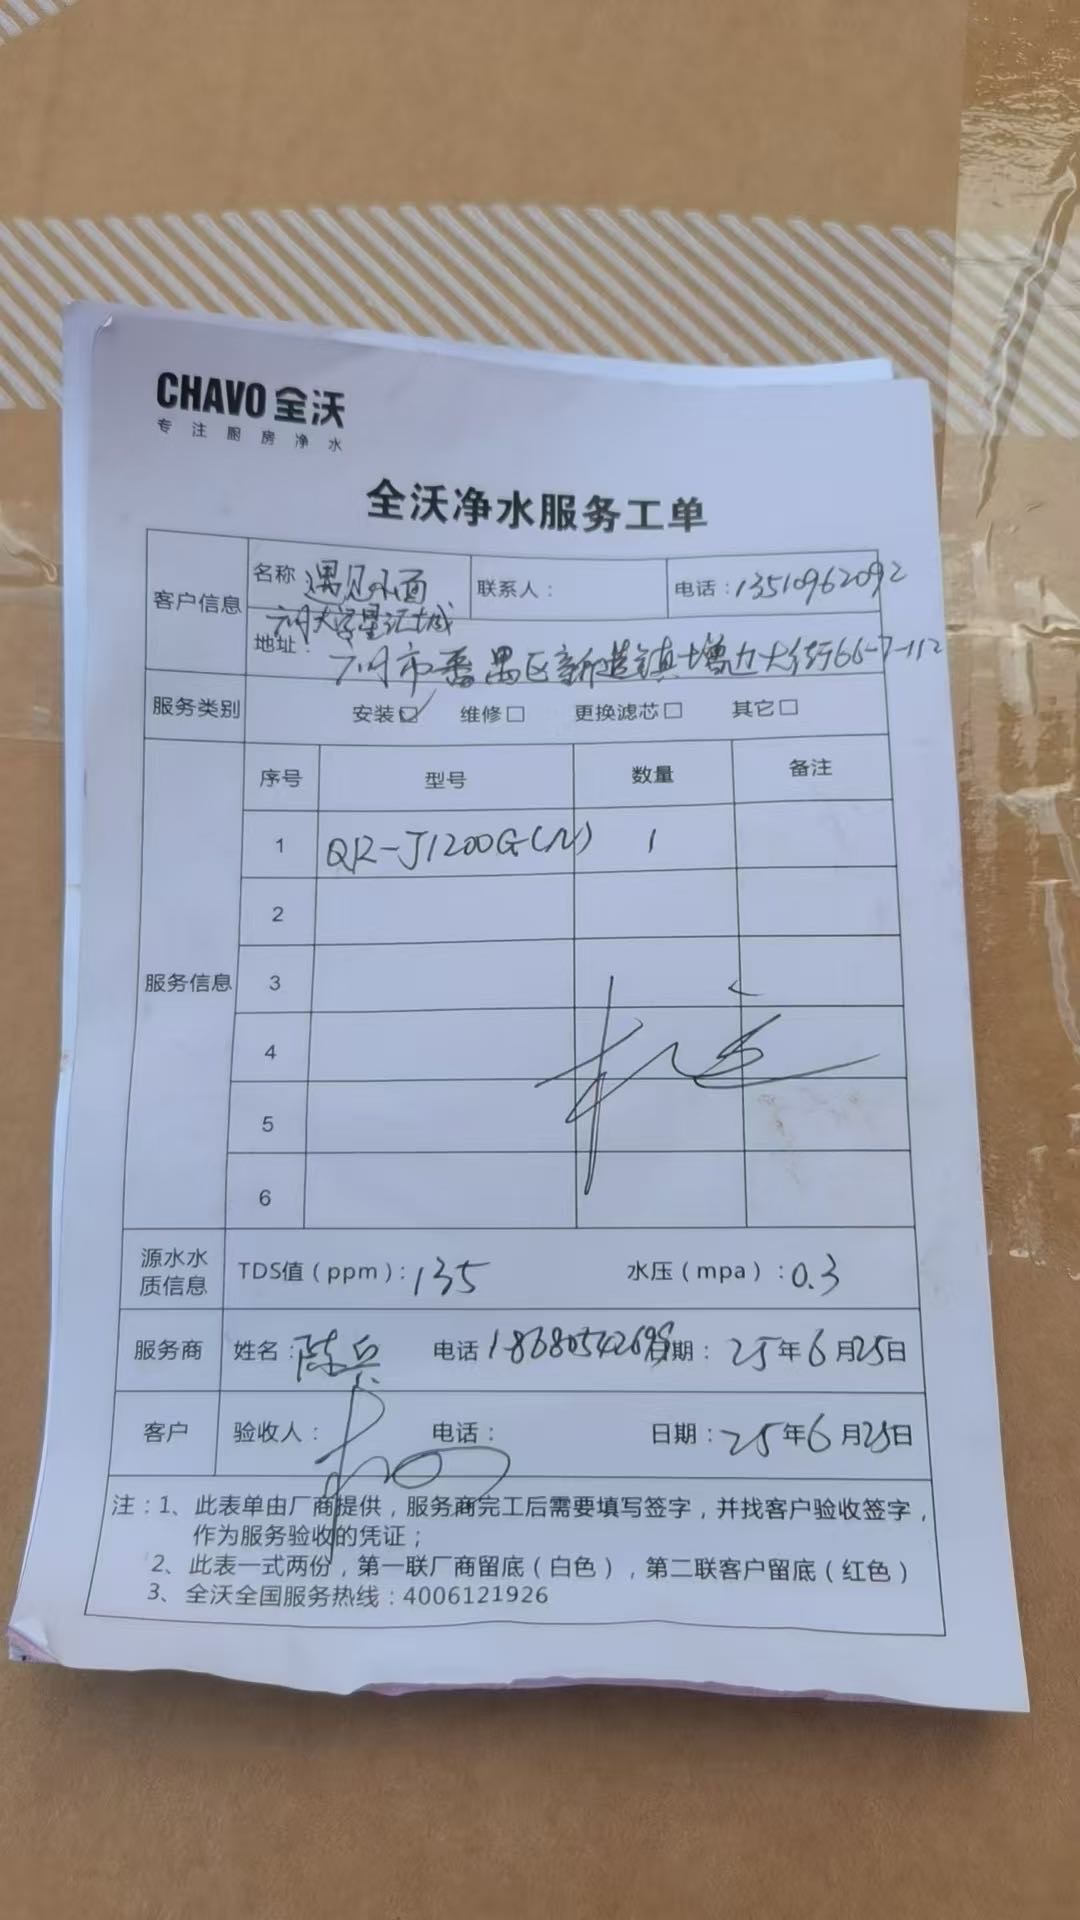 CHAVO 全沃
专注厨房净水
全沃净水服务工单
客户信息 名称 遇见小面 联系人： 电话：13510962092
广州大学星汇城
地址：广州市番禺区新造镇增力大街66-7-112
服务类别 安装☑ 维修□ 更换滤芯□ 其它□
服务信息 序号 型号 数量 备注
1 QR-J1200G(N) 1
2
3
4
5
6
源水水质信息 TDS值（ppm）：135 水压（mpa）：0.3
服务商 姓名：陈兵 电话 日期：25年6月25日
客户 验收人： 电话： 日期：25年6月25日
注：1、此表单由厂商提供，服务商完工后需要填写签字，并找客户验收签字，
作为服务验收的凭证；
2、此表一式两份，第一联厂商留底（白色），第二联客户留底（红色）
3、全沃全国服务热线：4006121926